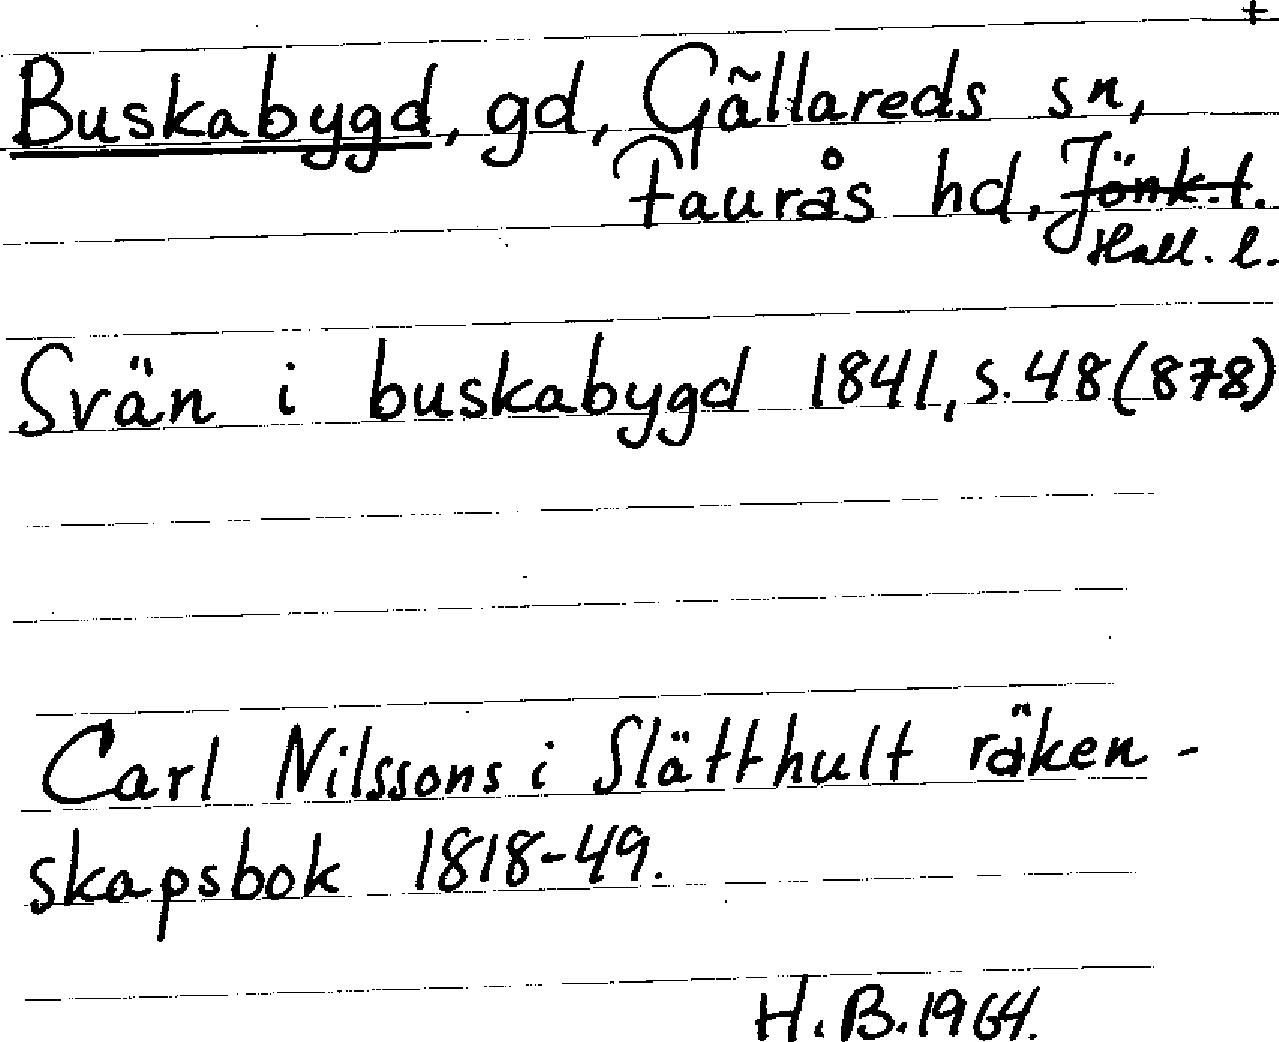 +
Buskabygd, gd, Gällareds sn,
Faurås hd, Jönk.l.
Hall. l.
Svän i buskabygd 1841, s. 48 (878)
Carl Nilssons i Slätthult räken-
skapsbok 1818-49.
H.B. 1964.